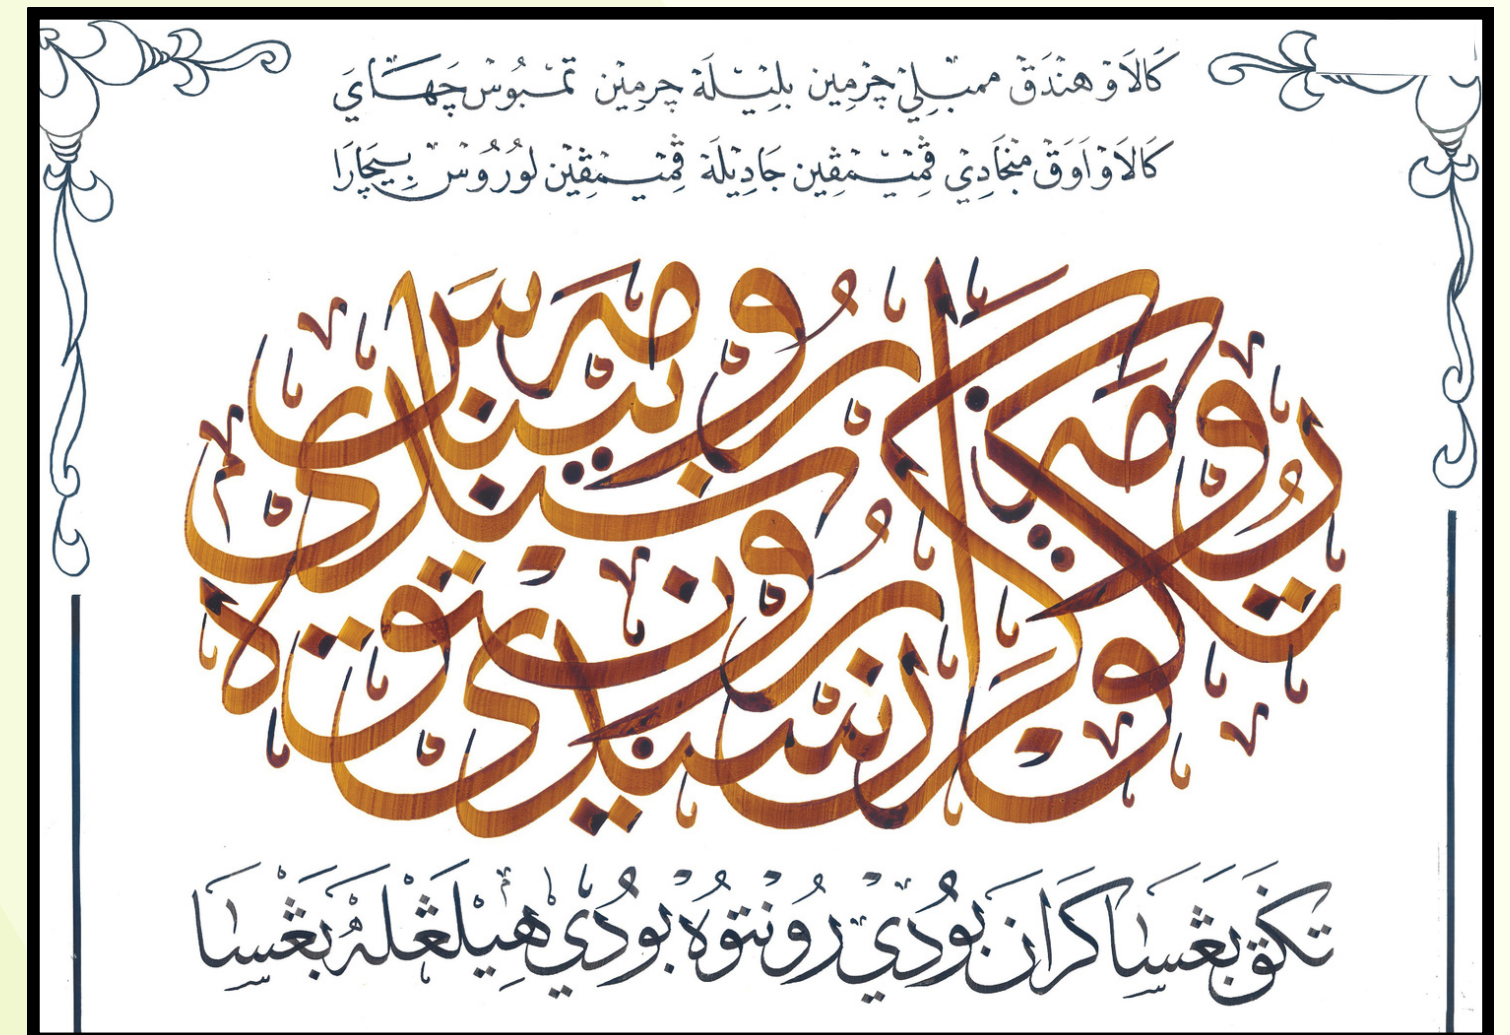 كالاو هندق ممبلي چرمين بليله چرمين تمبوس چهاي
كالاو اوق منجادي ڤميمڤين جاديله ڤميمڤين لوروس بيچارا
تكق رومه كران سندي رونتوه سندي رومه بيناس
تكق بڠسا كران بودي رونتوه بودي هيلڠله بڠسا